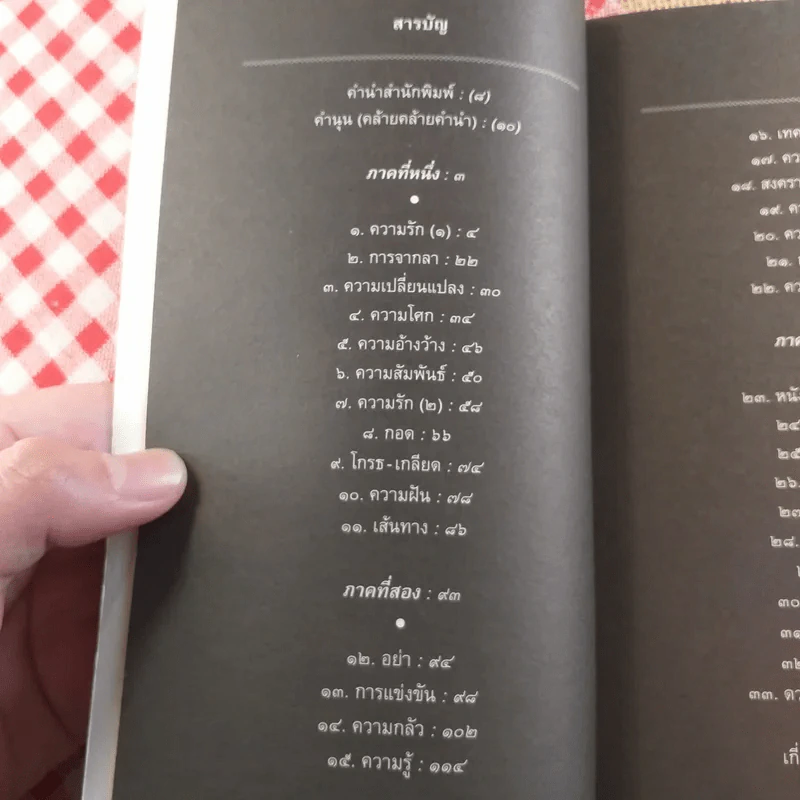 สารบัญ
คำนำสำนักพิมพ์ : (๘)
คำนุน (คล้ายคล้ายคำนำ) : (๑๐)
ภาคที่หนึ่ง : ๓
๑. ความรัก (๑) : ๔
๒. การจากลา : ๒๒
๓. ความเปลี่ยนแปลง : ๓๐
๔. ความโศก : ๓๔
๕. ความอ้างว้าง : ๔๖
๖. ความสัมพันธ์ : ๕๐
๗. ความรัก (๒) : ๕๘
๘. กอด : ๖๖
๙. โกรธ-เกลียด : ๗๔
๑๐. ความฝัน : ๗๘
๑๑. เส้นทาง : ๘๖
ภาคที่สอง : ๙๓
๑๒. อย่า : ๙๔
๑๓. การแข่งขัน : ๙๘
๑๔. ความกลัว : ๑๐๒
๑๕. ความรู้ : ๑๑๔
๑๖.
๑๗.
๑๘.
๑๙.
๒๐.
๒๑.
๒๒.
๒๓.
๒๔
๒๕
๒๖.
๒๗
๒๘.
๓๐
๓๑
๓๒
๓๓.